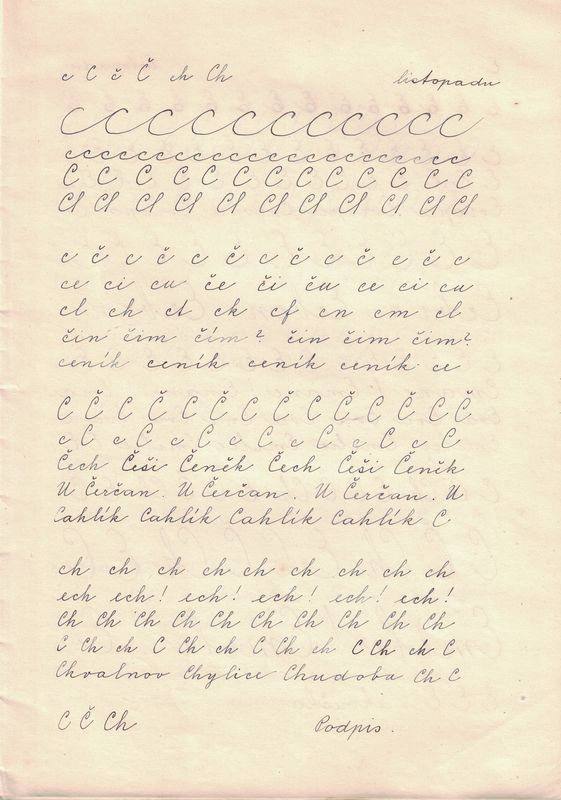 c C č Č ch Ch listopadu
C C C C C C C C C C C C C C
c c c c c c c c c c c c c c c c c c c c c
C C C C C C C C C C C C
Cl Cl Cl Cl Cl Cl Cl Cl Cl Cl Cl
c č c č c č c č c č c č c
ce ci cu če či ču ce ci cu
cl ch ct ck cf cn cm cl
čin čim čím? čin čim čim?
ceník ceník ceník ceník ce
C Č C Č C Č C Č C Č C Č C Č
c C c C c C c C c C c C c C
Čech Češi Čeněk Čech Češi Čeněk
U Čerčan. U Čerčan. U Čerčan. U
Cahlík Cahlík Cahlík Cahlík C
ch ch ch ch ch ch ch ch ch
ech ech! ech! ech! ech! ech!
Ch Ch Ch Ch Ch Ch Ch Ch Ch Ch
C Ch ch C Ch ch C Ch ch C Ch ch C
Chvalnov Chylice Chudoba Ch C
C Č Ch Podpis.